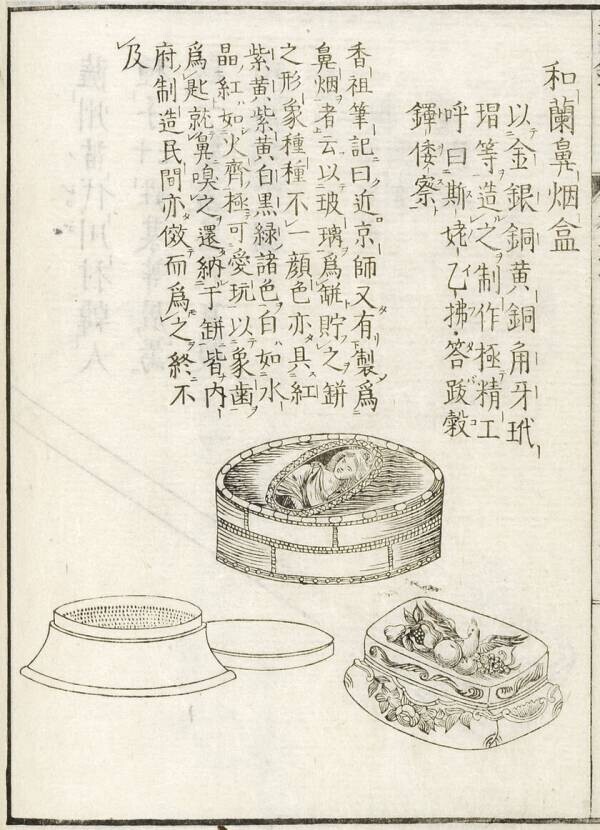 和蘭鼻烟盒
以金銀銅黄銅角牙玳
瑁等造之制作極精工
呼曰斯姥乙拂答跋穀
鐸倭察
香祖筆記曰近京師又有製爲
鼻烟者云以玻璃爲缾貯之缾
之形象種種不一顔色亦具紅
紫黄紫黄白黒緑諸色白如水
晶紅如火齊極可愛玩以象齒
爲匙就鼻嗅之還納于缾皆内
府制造民間亦倣而爲之終不
及